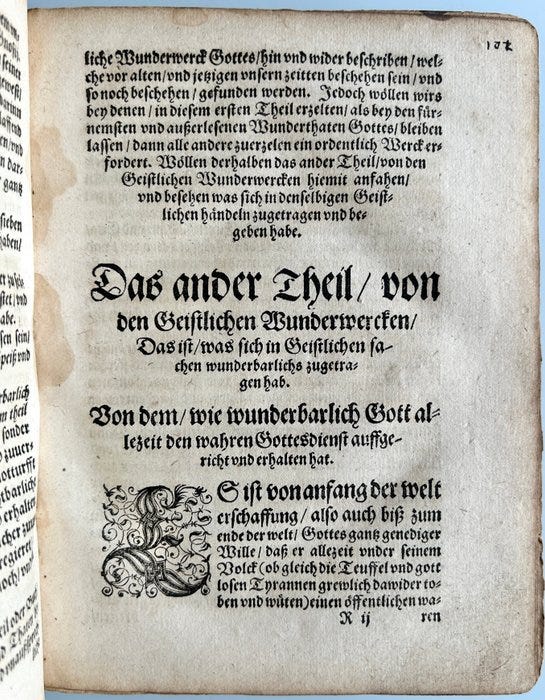 liche Wunderwerck Gottes/hin vnd wider beschriben/wel-
che vor alten/vnd jetzigen vnsern zeitten beschehen sein/vnd
so noch beschehen/gefunden werden. Jedoch wöllen wirs
bey denen/in diesem ersten Theil erzelten/als bey den für-
nemsten vnd außerlesenen Wunderthaten Gottes/bleiben
lassen/dann alle andere zuerzelen ein ordentlich Werck er-
fordert. Wöllen derhalben das ander Theil/von den
Geistlichen Wunderwercken hiemit anfahen/
vnd besehen was sich in denselbigen Geist-
lichen händeln zugetragen vnd be-
geben habe.
Das ander Theil/von
den Geistlichen Wunderwercken/
Das ist/was sich in Geistlichen sa-
chen wunderbarlichs zugetra-
gen hab.
Von dem/wie wunderbarlich Gott al-
lezeit den wahren Gottesdienst auffge-
richt vnd erhalten hat.
ES ist von anfang der welt
erschaffung/also auch biß zum
ende der welt/Gottes gantz genediger
Wille/daß er allezeit vnder seinem
Volck(ob gleich die Teuffel vnd gott
losen Tyrannen grewlich dawider to-
ben vnd wüten)einen öffentlichen wa-
R ij ren